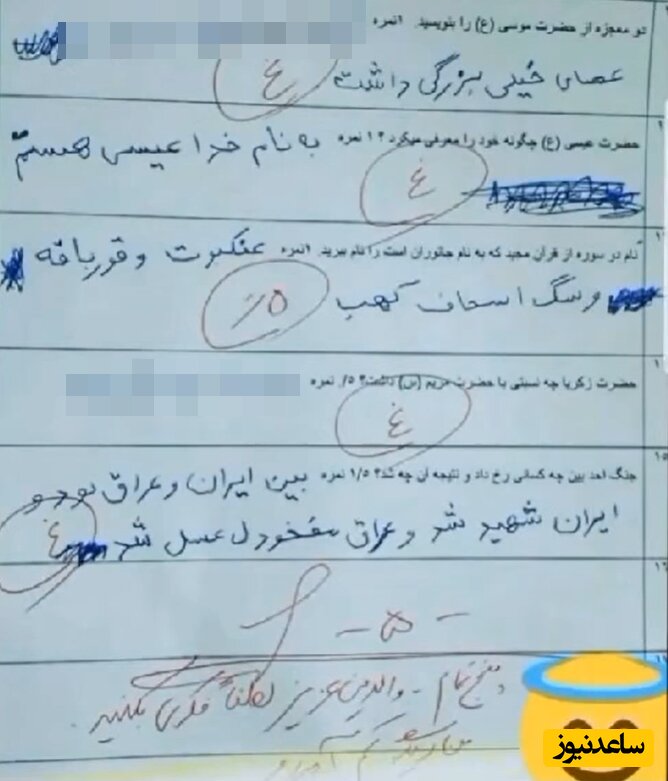 دو معجزه از حضرت موسی (ع) را بنویسید. ۱نمره
عصای خیلی بزرگی داشت
غ
حضرت عیسی (ع) چگونه خود را معرفی میکرد؟ ۱ نمره به نام خدا عیسی هستم
غ
نام دو سوره از قرآن مجید که به نام جانوران است را نام ببرید. ۱نمره عنکبوت و قورباقه
و سگ اسحاف کهب
۵٪
حضرت زکریا چه نسبتی با حضرت مریم (س) داشت؟ ۵/. نمره
غ
۱۵
جنگ احد بین چه کسانی رخ داد و نتیجه آن چه شد؟ ۱/۵ نمره بین ایران و عراق بود و
ایران شهید شد و عراق مفخودل عسل شد
غ
۱۶
- ۵ -
پنج تمام - والدین عزیز لطفاً فکری بکنید.
ساعدنیوز